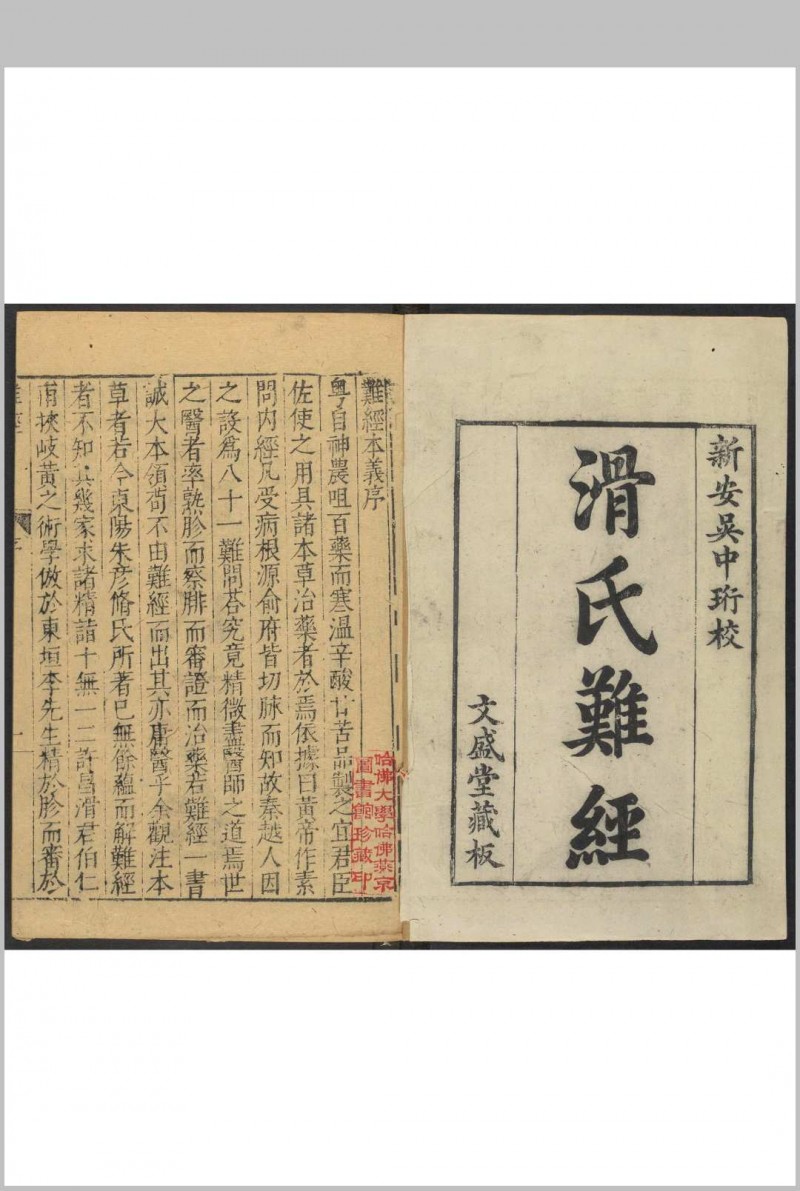 新安吳中珩校
滑氏難經
文盛堂藏板
難經本義序
粤自神農咀百藥而寒溫辛酸甘苦品製之宜君臣
佐使之用具諸本草治藥者於焉依據曰黃帝作素
問內經凡受病根源俞府皆切脉而知故秦越人因
之設為八十一難問荅究竟精微盡醫師之道焉世
之醫者率熟胗而察腓而審證而治藥若難經一書
誠大本領苟不由難經而出其亦庸醫乎余觀注本
草者若今東陽朱彥脩氏所著已無餘蘊而解難經
者不知其幾家求諸精詣十無一二許昌滑君伯仁
甫挾岐黃之術學倣於東垣李先生精於胗而審於
難經
序
一
哈佛大學哈佛燕京
圖書館珍藏印